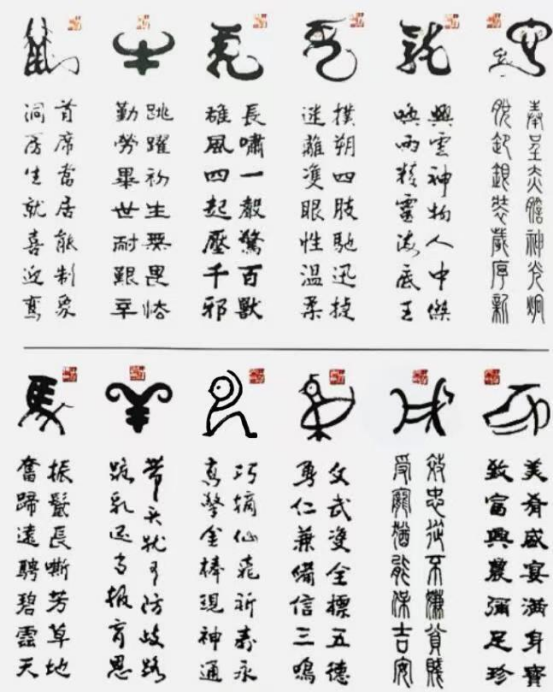 首席當居能制象
洞房生就喜迎鸞
跳躍初生無畏
勤勞畢世耐艱辛
長嘯一聲驚百獸
雄風四起壓千邪
撲朔四肢馳迅捷
迷離雙眼性溫柔
興雲神物人中傑
喚雨精靈海底王
奉呈膽神光炯
脫卻銀裝歲序新
振鬣長嘶芳草地
奮蹄遠騁碧雲天
帶犹可防歧路
跪乳還當報育恩
巧摘仙桃祈壽永
高擎金棒現神通
文武雙全標五德
勇仁兼備信三鳴
效忠從不嫌貧賤
受寵猶能保吉安
美肴盛宴滿身寶
致富興農彌足珍